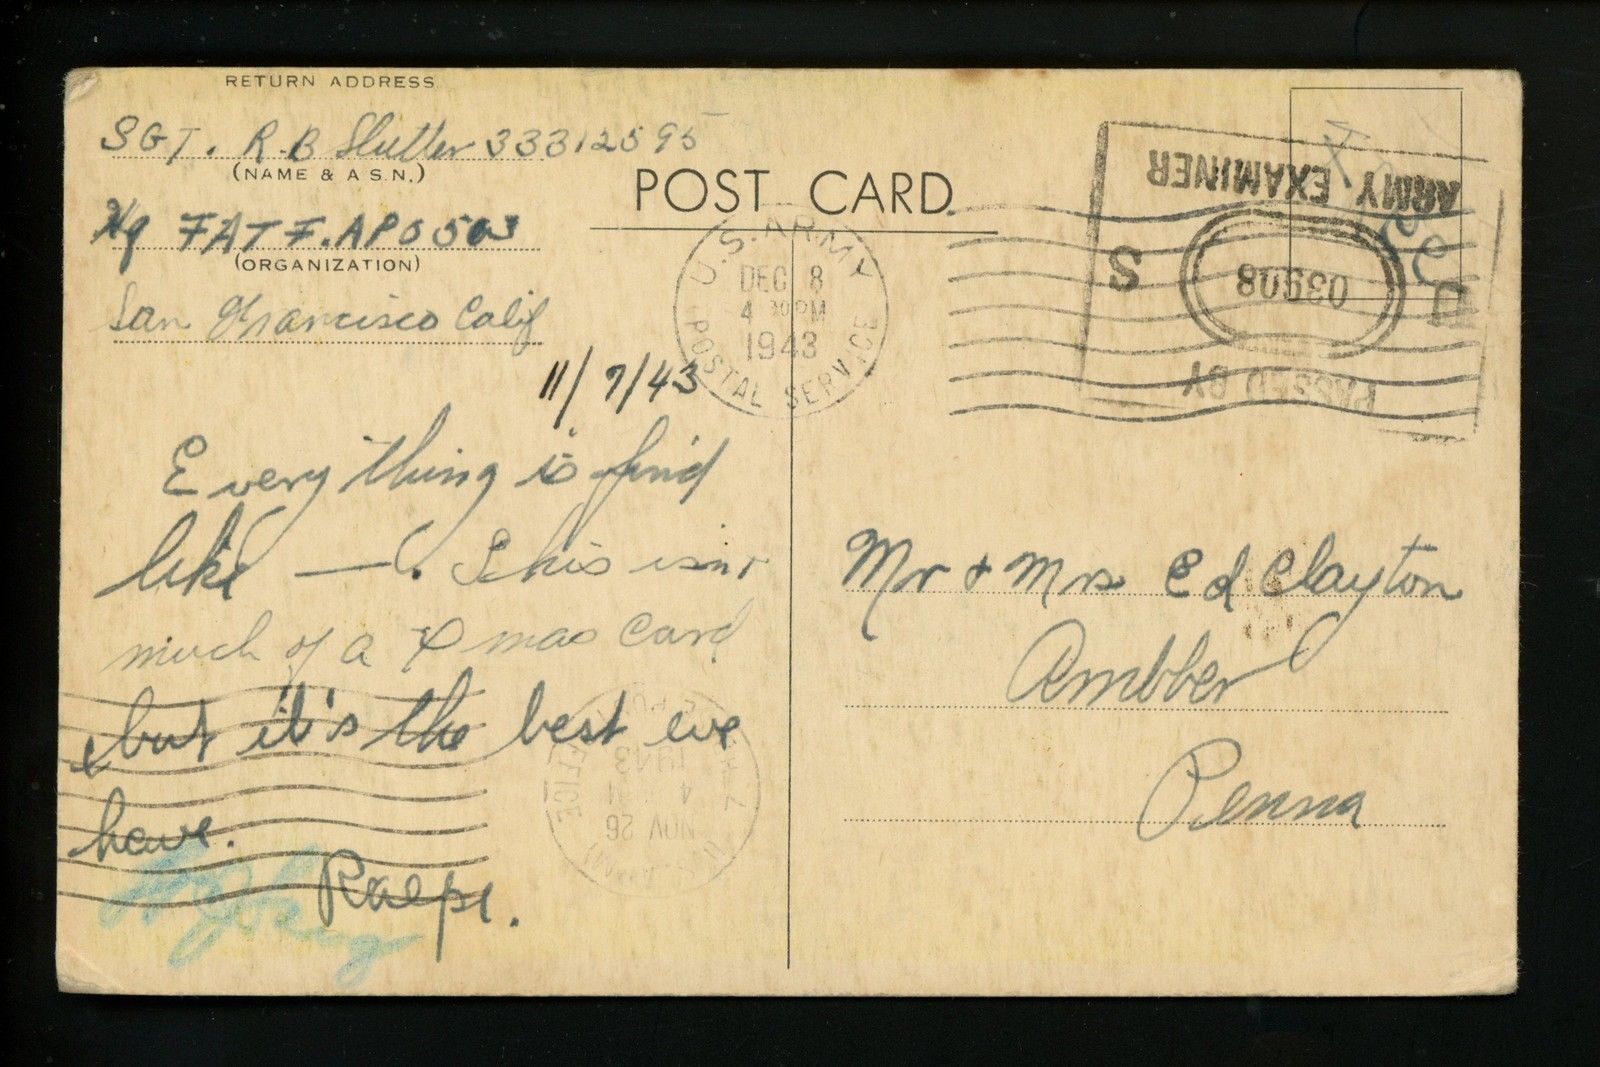 RETURN ADDRESS
SGT. R.B Slutter 33312595
(NAME & A S.N.)
Hq FATF. APO 503
(ORGANIZATION)
San Francisco Calif
POST CARD
U.S. ARMY
DEC 8
4 30 PM
1943
POSTAL SERVICE
PASSED BY
S 03908 U
ARMY EXAMINER
11/7/43
Everything is find
like —(. This isn't
much of a Xmas Card
but it's the best we
have.
Ralph.
NOV 26
4
1943
Mr & Mrs Ed Clayton
Ambber
Penna